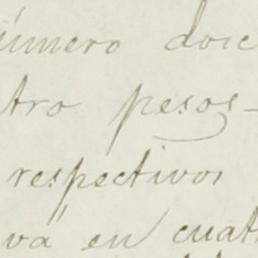 número doce
tro pesos-
respectivos
va en cuat